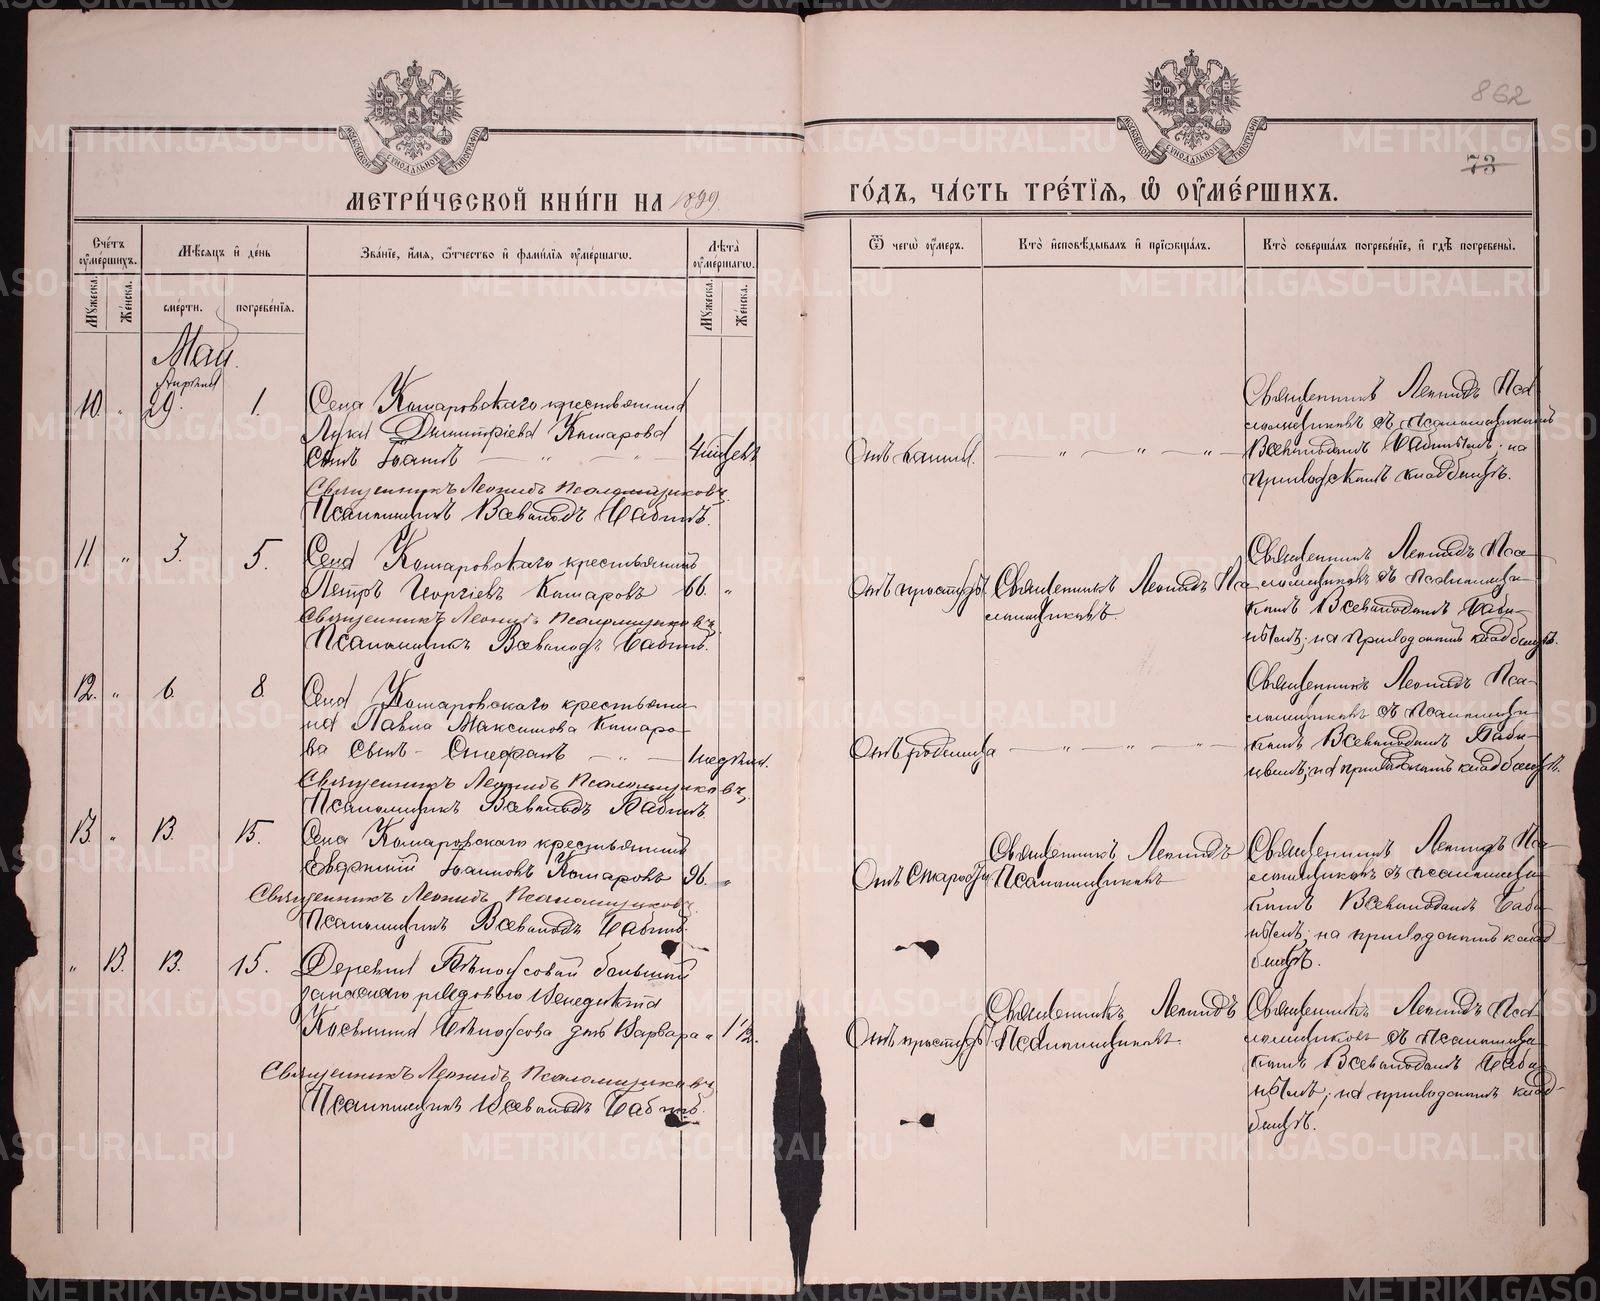 862
73
МЕТРИ́ЧЕСКОЙ КНИ́ГИ НА 1899
ГО́ДЪ, ЧА́СТЬ ТРЕ́ТІѦ, Ѽ ОУ҆МЕ́РШИХЪ.
Сче́тъ оу҆ме́ршихъ.
Мѣ́сяцъ и҆ де́нь
Зва́нїе, и҆́мѧ, ѻ҆́тчество и҆ фами́лїѧ оу҆ме́ршагѡ.
Лѣта̀ оу҆ме́ршагѡ.
Ѿ чегѡ̀ оу҆́меръ.
Кто̀ и҆сповѣ́дывалъ и҆ прїѡбща́лъ.
Кто̀ соверша́лъ погребе́нїе, и҆ гдѣ̀ погребены̀.
Мꙋ́жеска.
Же́нска.
сме́рти.
погребе́нїѧ.
Мꙋ́жеска.
Же́нска.
Май.
Апрѣля
10. " 29. 1.
Села Комаровскаго крестьянина
Луки Димитріева Комарова
сынъ Іоаннъ — " — " —
4 мѣсец.
Священникъ Леонидъ Псаломщиковъ.
Псаломщикъ Всеволодъ Бабинъ.
Отъ кашля.
— " — " — " —
Священникъ Леонидъ Пса
ломщиковъ съ псаломщикомъ
Всеволодомъ Бабинымъ; на
приходскомъ кладбищѣ.
11 " 3. 5.
Села Комаровскаго крестьянинъ
Петръ Георгіевъ Комаровъ 66. "
Священникъ Леонидъ Псаломщиковъ.
Псаломщикъ Всеволодъ Бабинъ.
Отъ простуды.
Священникъ Леонидъ Пса
ломщиковъ.
Священникъ Леонидъ Пса-
ломщиковъ съ псаломщи-
комъ Всеволодомъ Баби-
нымъ; на приходскомъ кладбищѣ.
12. " 6. 8
Села Комаровскаго крестьяни-
на Павла Максимова Комаро-
ва сынъ - Стефанъ — " —
1 недѣли.
Священникъ Леонидъ Псаломщиковъ,
Псаломщикъ Всеволодъ Бабинъ
Отъ родимца
— " — " — " —
Священникъ Леонидъ Пса-
ломщиковъ съ псаломщи-
комъ Всеволодомъ Баби-
нымъ; на приходскомъ кладбищѣ.
13. " 13. 15.
Села Комаровскаго крестьянинъ
Евфимій Іоанновъ Комаровъ 96. "
Священникъ Леонидъ Псаломщиковъ.
Псаломщикъ Всеволодъ Бабинъ.
Отъ старости
Священникъ Леонидъ
Псаломщиковъ
Священникъ Леонидъ Пса-
ломщиковъ съ псаломщи-
комъ Всеволодомъ Баби-
нымъ; на приходскомъ клад-
бищѣ.
" 13. 13. 15.
Деревни Бѣлоусовой бывшій
запаснаго рядового Венедикта
Космина Бѣлоусова дочь Варвара " 1 1/2.
Священникъ Леонидъ Псаломщиковъ
Псаломщикъ Всеволодъ Бабинъ.
Отъ простуды.
Священникъ Леонидъ
Псаломщиковъ.
Священникъ Леонидъ Пса
ломщиковъ съ псаломщи-
комъ Всеволодомъ Баби-
нымъ; на приходскомъ клад-
бищѣ.
METRIKI.GASO-URAL.RU